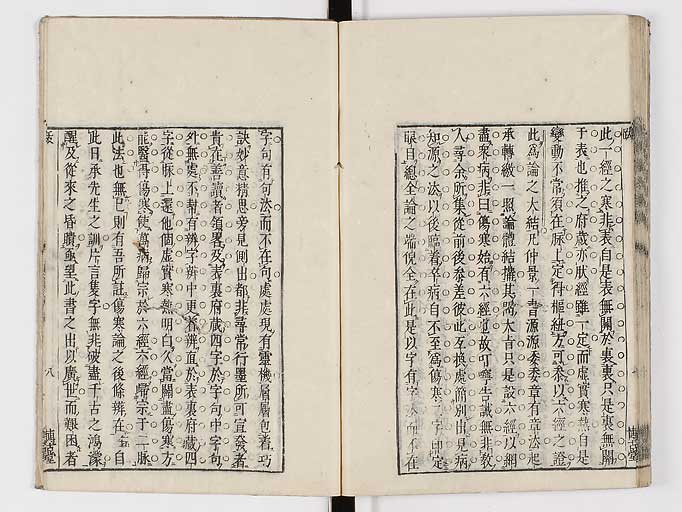 此一經之寒非表自是表無關於裏裏只是裏無關
于表也推之府藏亦狀經雖一定而虛實寒熱自是
變動不常須在脉上定得樞紐方可叅以六經之證
此爲論之大結凡仲景一書源源委委章有章法起
承轉繳一照論體結搆其畧大旨只是設六經以網
盡衆病非曰傷寒始有六經也故叮嚀告誡無非教
人尋余所集從前後叅差彼此互換處簡別出見病
知源之法以後臨着卒病自不至爲傷寒二字印定
眼目總全論之端倪全在此是以字有字法而不在
字句有句法而不在句處處現有靈機層層包着巧
訣妙意精思旁見側出都非尋常行墨所可宣發者
貴在善讀者領畧及表裏府藏四字於字句中字句
外無處不幫有辨字辨中更着辨直於表裏府藏四
字從脉上還他個虛實寒熱明白久當闢盡傷寒方
能醫得傷寒使萬病歸宗於六經六經歸宗于一脉
此法也無已則有吾所註傷寒論之後條辨在在自
此日承先生之訓片言隻字無非破盡千古之鴻濛
醒及從來之昏聵亟望此書之出以廣世而艱困者
八